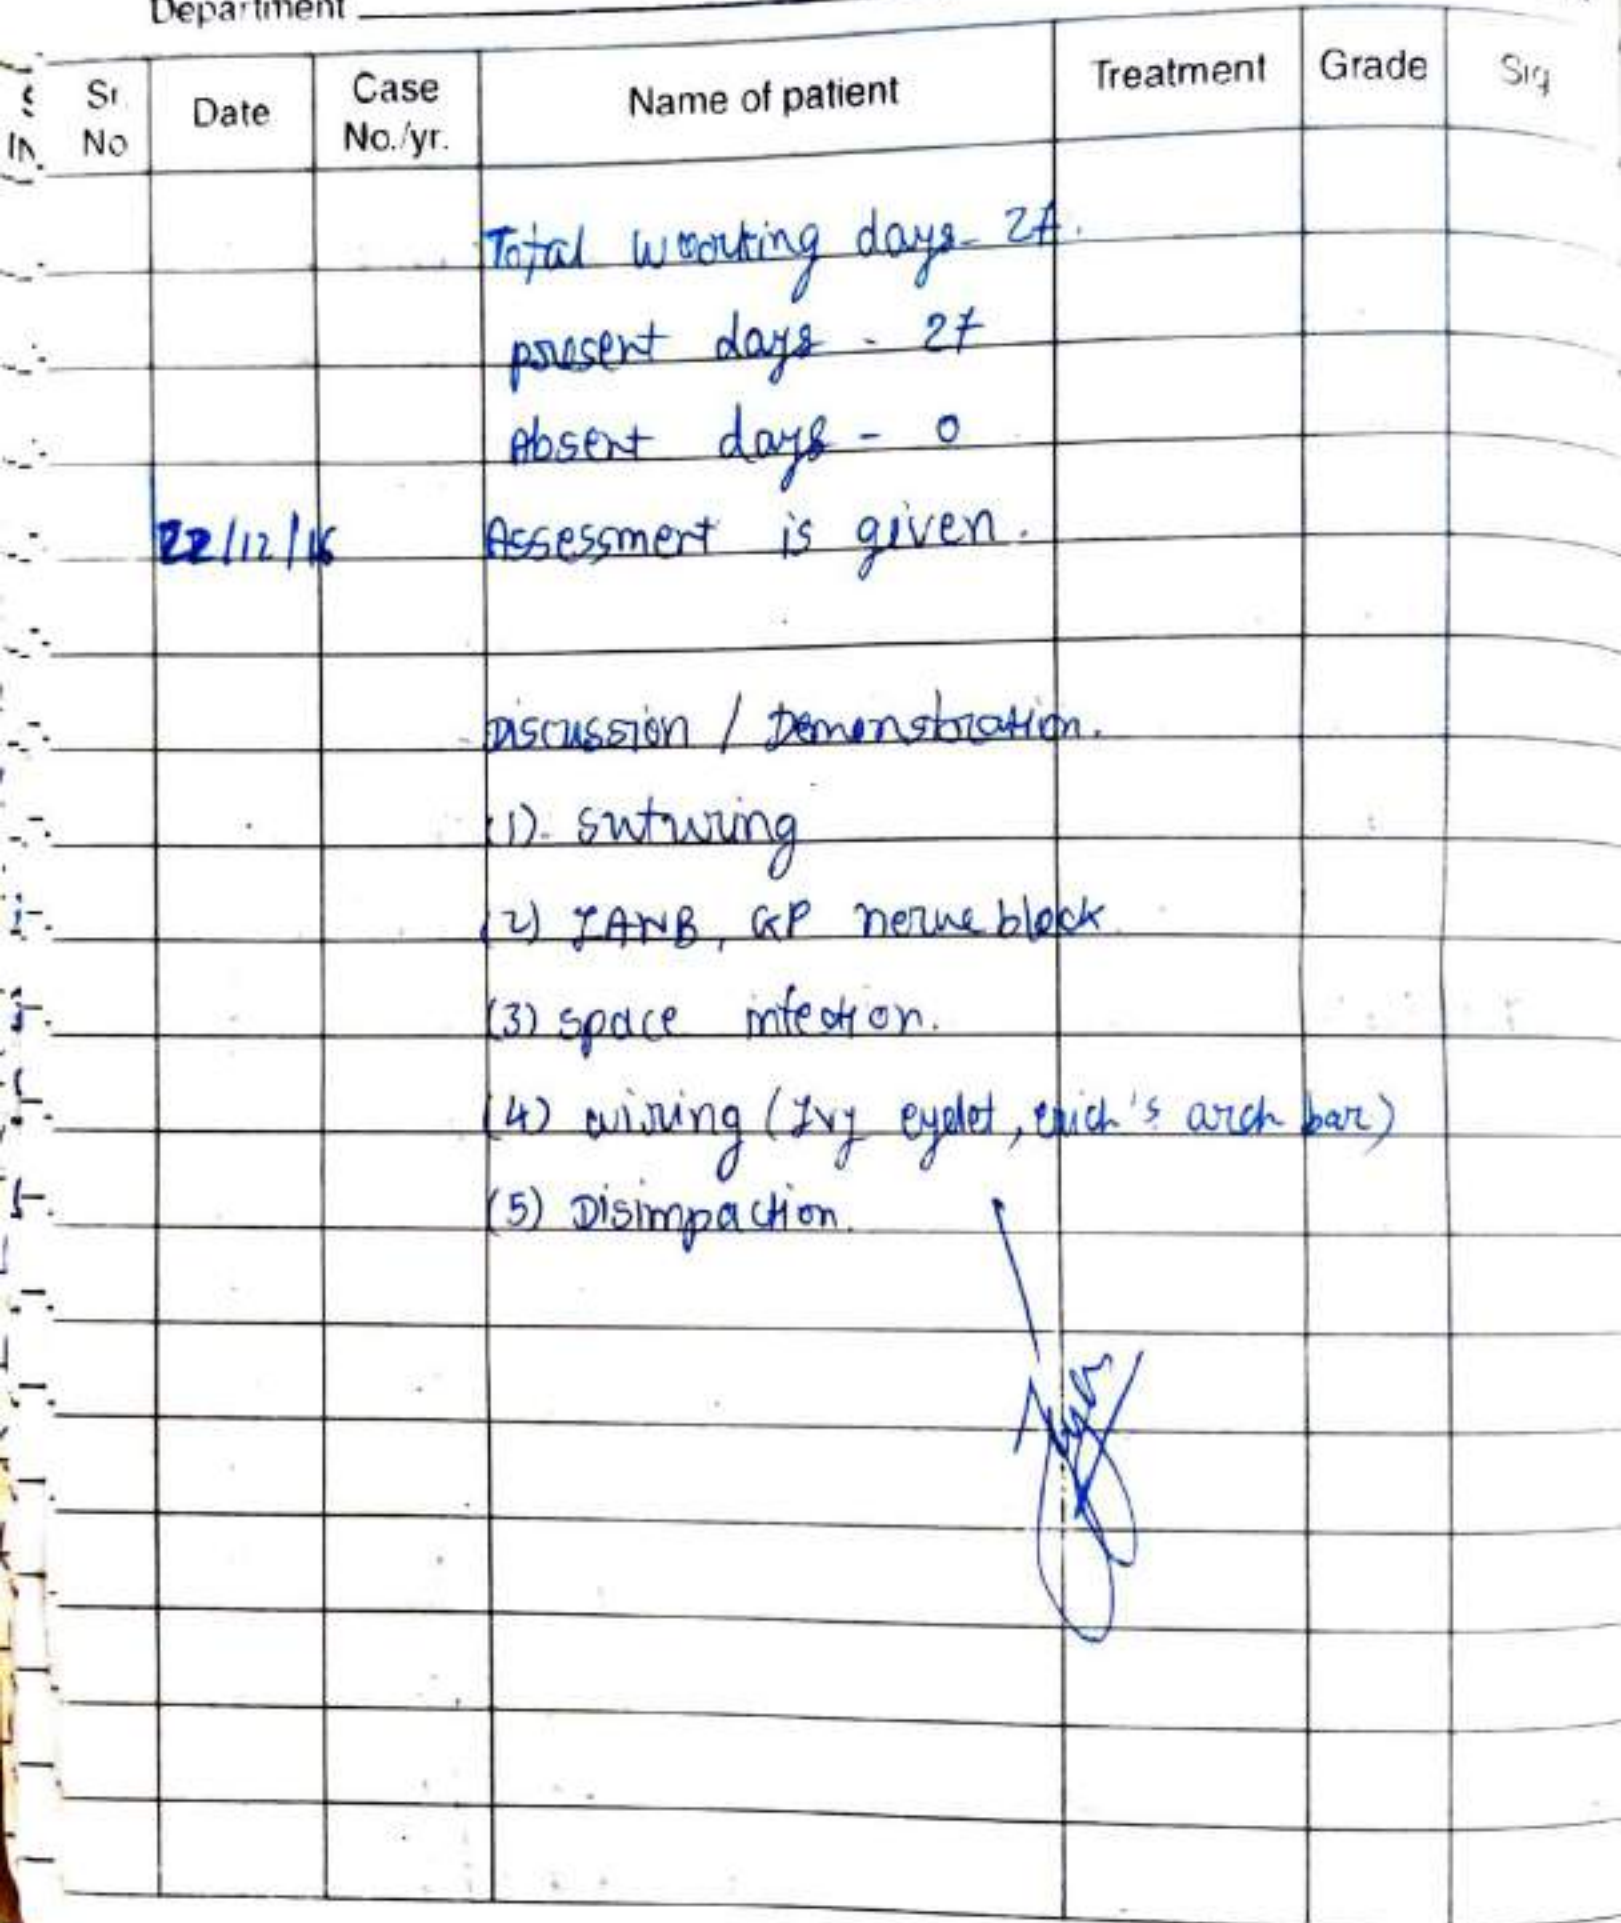 Department
Sr. No Date Case No./yr. Name of patient Treatment Grade Sig
Total working days - 27.
present days - 27
Absent days - 0
22/12/16 Assessment is given.
Discussion / Demonstration.
(1). suturing
(2) IANB, GP nerve block
(3) space infection.
(4) wiring (Ivy eyelet, erich's arch bar)
(5) Disimpaction.